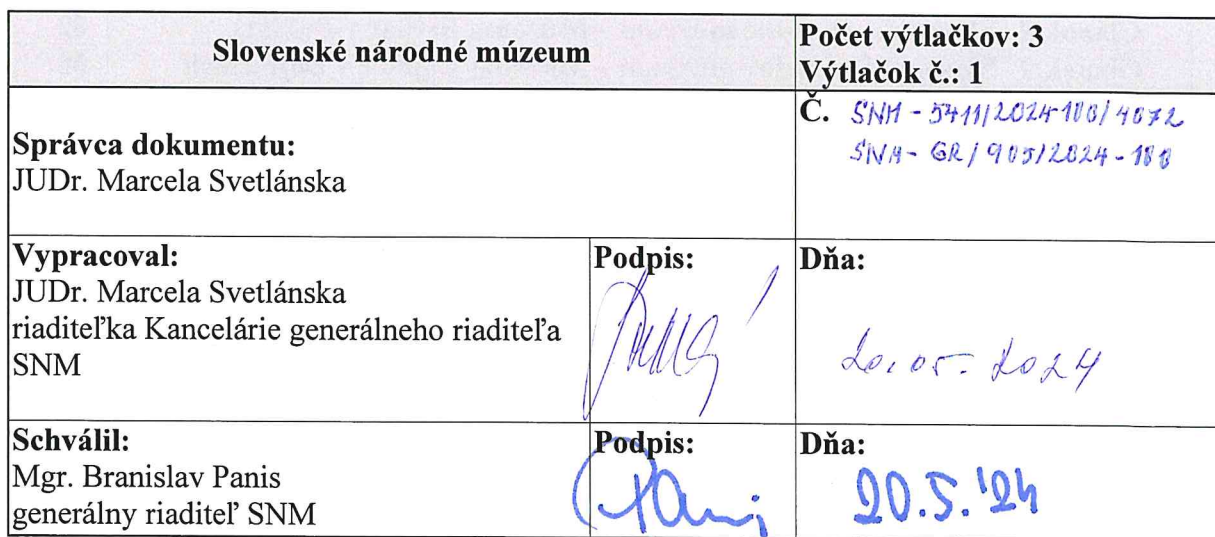 Slovenské národné múzeum
Počet výtlačkov: 3
Výtlačok č.: 1
Správca dokumentu:
JUDr. Marcela Svetlánska
Č. SNM - 5411/2024-100/4072
SNM - GR/905/2024-100
Vypracoval:
JUDr. Marcela Svetlánska
riaditeľka Kancelárie generálneho riaditeľa
SNM
Podpis:
Dňa:
20.05.2024
Schválil:
Mgr. Branislav Panis
generálny riaditeľ SNM
Podpis:
Panis
Dňa:
20.5.'24